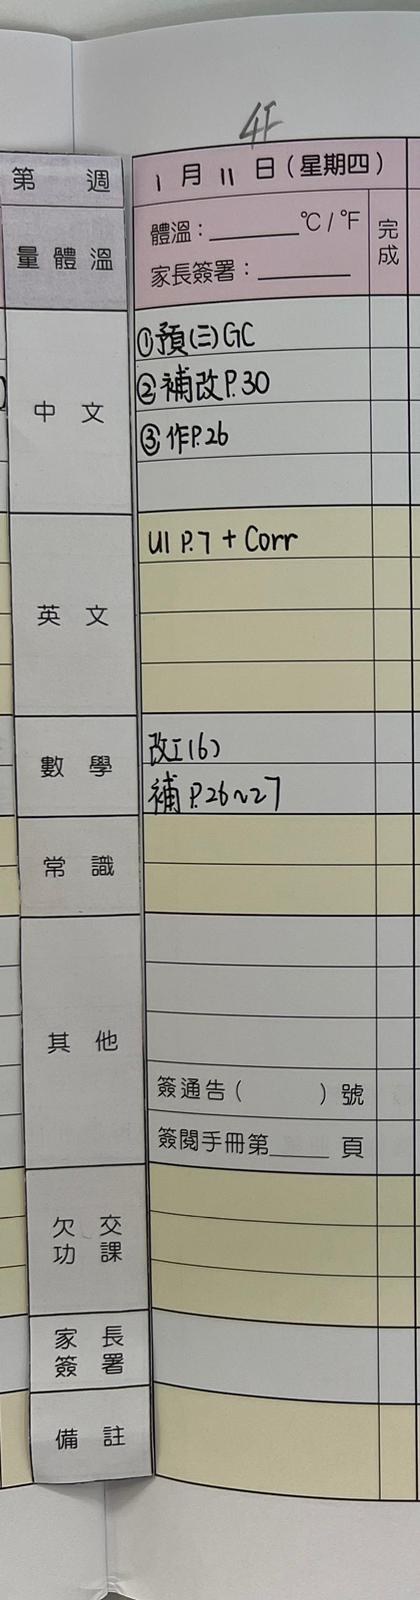 4F
第 週
1月11日(星期四)
量體溫
體溫:______°C / °F
家長簽署:______
完成
中文
①預(三)GC
②補改P.30
③作P.26
英文
U1 P.7 + Corr
數學
改工(6)
補 P.26~27
常識
其他
簽通告( )號
簽閱手冊第____頁
欠交
功課
家長
簽署
備註